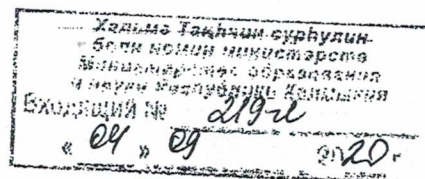 Хальмг Таңһчин сурһулин
болн номин министерств
Министерство образования
и науки Республики Калмыкия
ВХОДЯЩИЙ № 219-л
« 04 » 09 2020 г